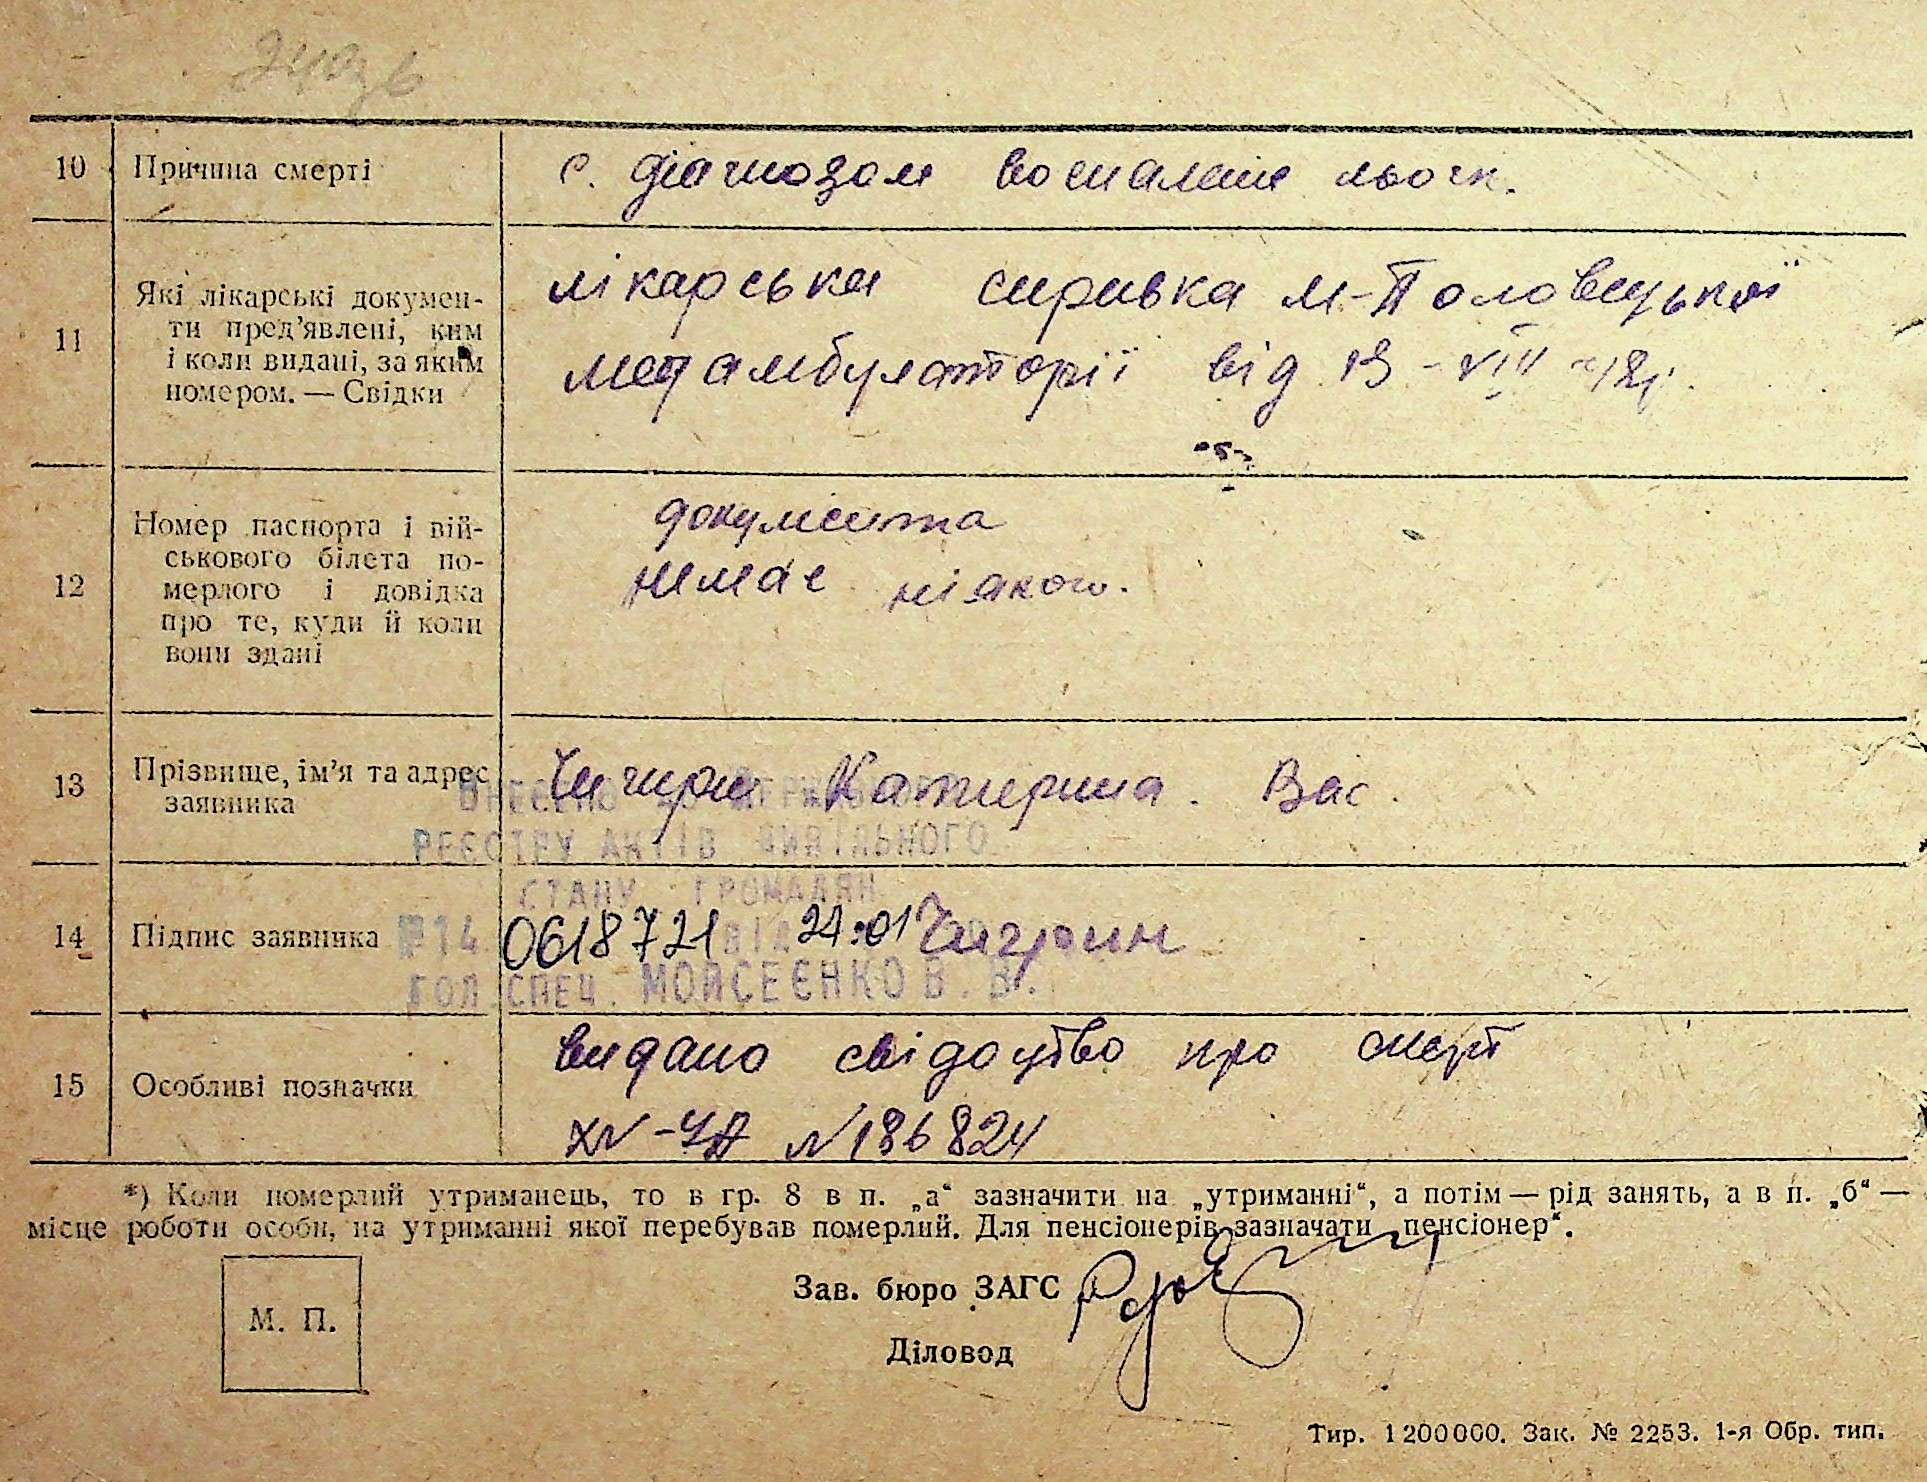 10 Причина смерті с. діагнозом воспаленя льогк.
Які лікарські докумен-
ти пред’явлені, ким
і коли видані, за яким
номером. — Свідки
11
лікарська справка м-Половецької
медамбулаторії від 13 - VIII
Номер паспорта і вій-
ськового білета по-
мерлого і довідка
про те, куди й коли
вони здані
12
документа
немає ніякого.
13 Прізвище, ім’я та адрес
заявника
Чигрин Катирина. Вас.
ВНЕСЕНО ДО ДЕРЖАВНОГО
РЕЄСТРУ АКТІВ ЦИВІЛЬНОГО
СТАНУ ГРОМАДЯН
14 Підпис заявника №14 0618721 ВІД 24.01 Чигрин
ГОЛ. СПЕЦ. МОЙСЕЄНКО В. В.
15 Особливі позначки
видано свідоцтво про смерт
N 186824
*) Коли померлий утриманець, то в гр. 8 в п. „а“ зазначити на „утриманні“, а потім — рід занять, а в п. „б“ —
місце роботи особи, на утриманні якої перебував померлий. Для пенсіонерів зазначати „пенсіонер“.
М. П.
Зав. бюро ЗАГС
Діловод
Тир. 1 200 000. Зак. № 2253. 1-я Обр. тип.